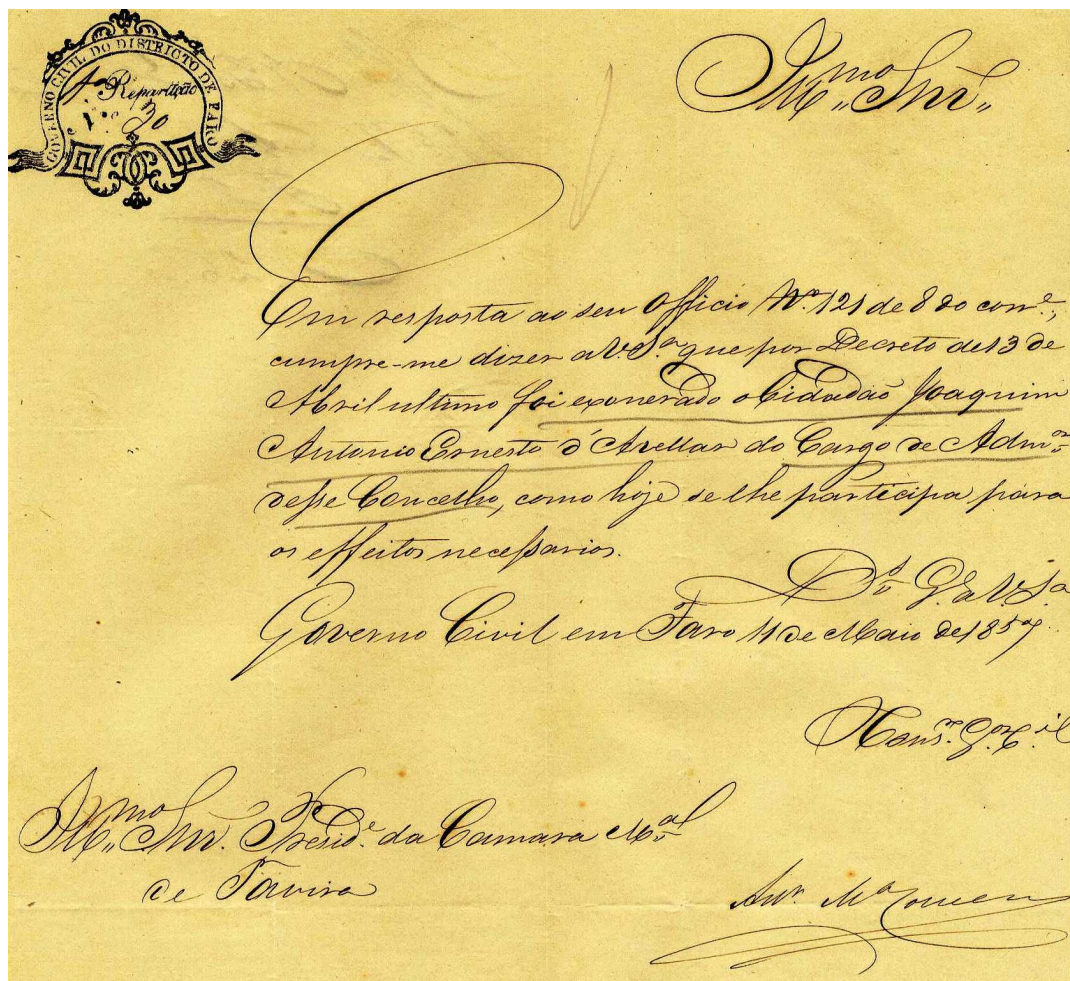 GOVERNO CIVIL DO DISTRICTO DE FARO
4ª Repartição
N.º 30
Illmo Snr.
Em resposta ao seu Officio Nº 121 de 8 do corre.,
cumpre-me dizer a V. Sª que por Decreto de 13 de
Abril ultimo foi exonerado o Cidadão Joaquim
Antonio Ernesto d'Avellar do Cargo de Admor
desse Concelho, como hoje se lhe participa para
os effeitos necessarios.
Ds Ge a V. Sª
Governo Civil em Faro 11 de Maio de 1857
Illmo Snr. Preside. da Camara Mal
de Tavira